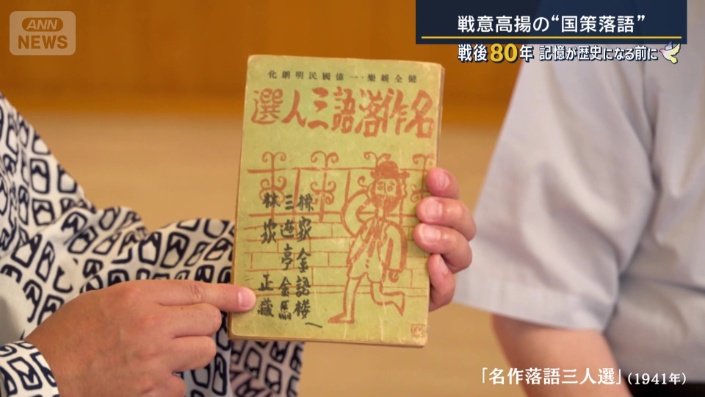 ANN
NEWS
戦意高揚の“国策落語”
戦後80年 記憶が歴史になる前に
健全娯樂・一億國民明朗化
名作落語三人選
柳家金語楼
三遊亭金馬
林家正藏
「名作落語三人選」(1941年)